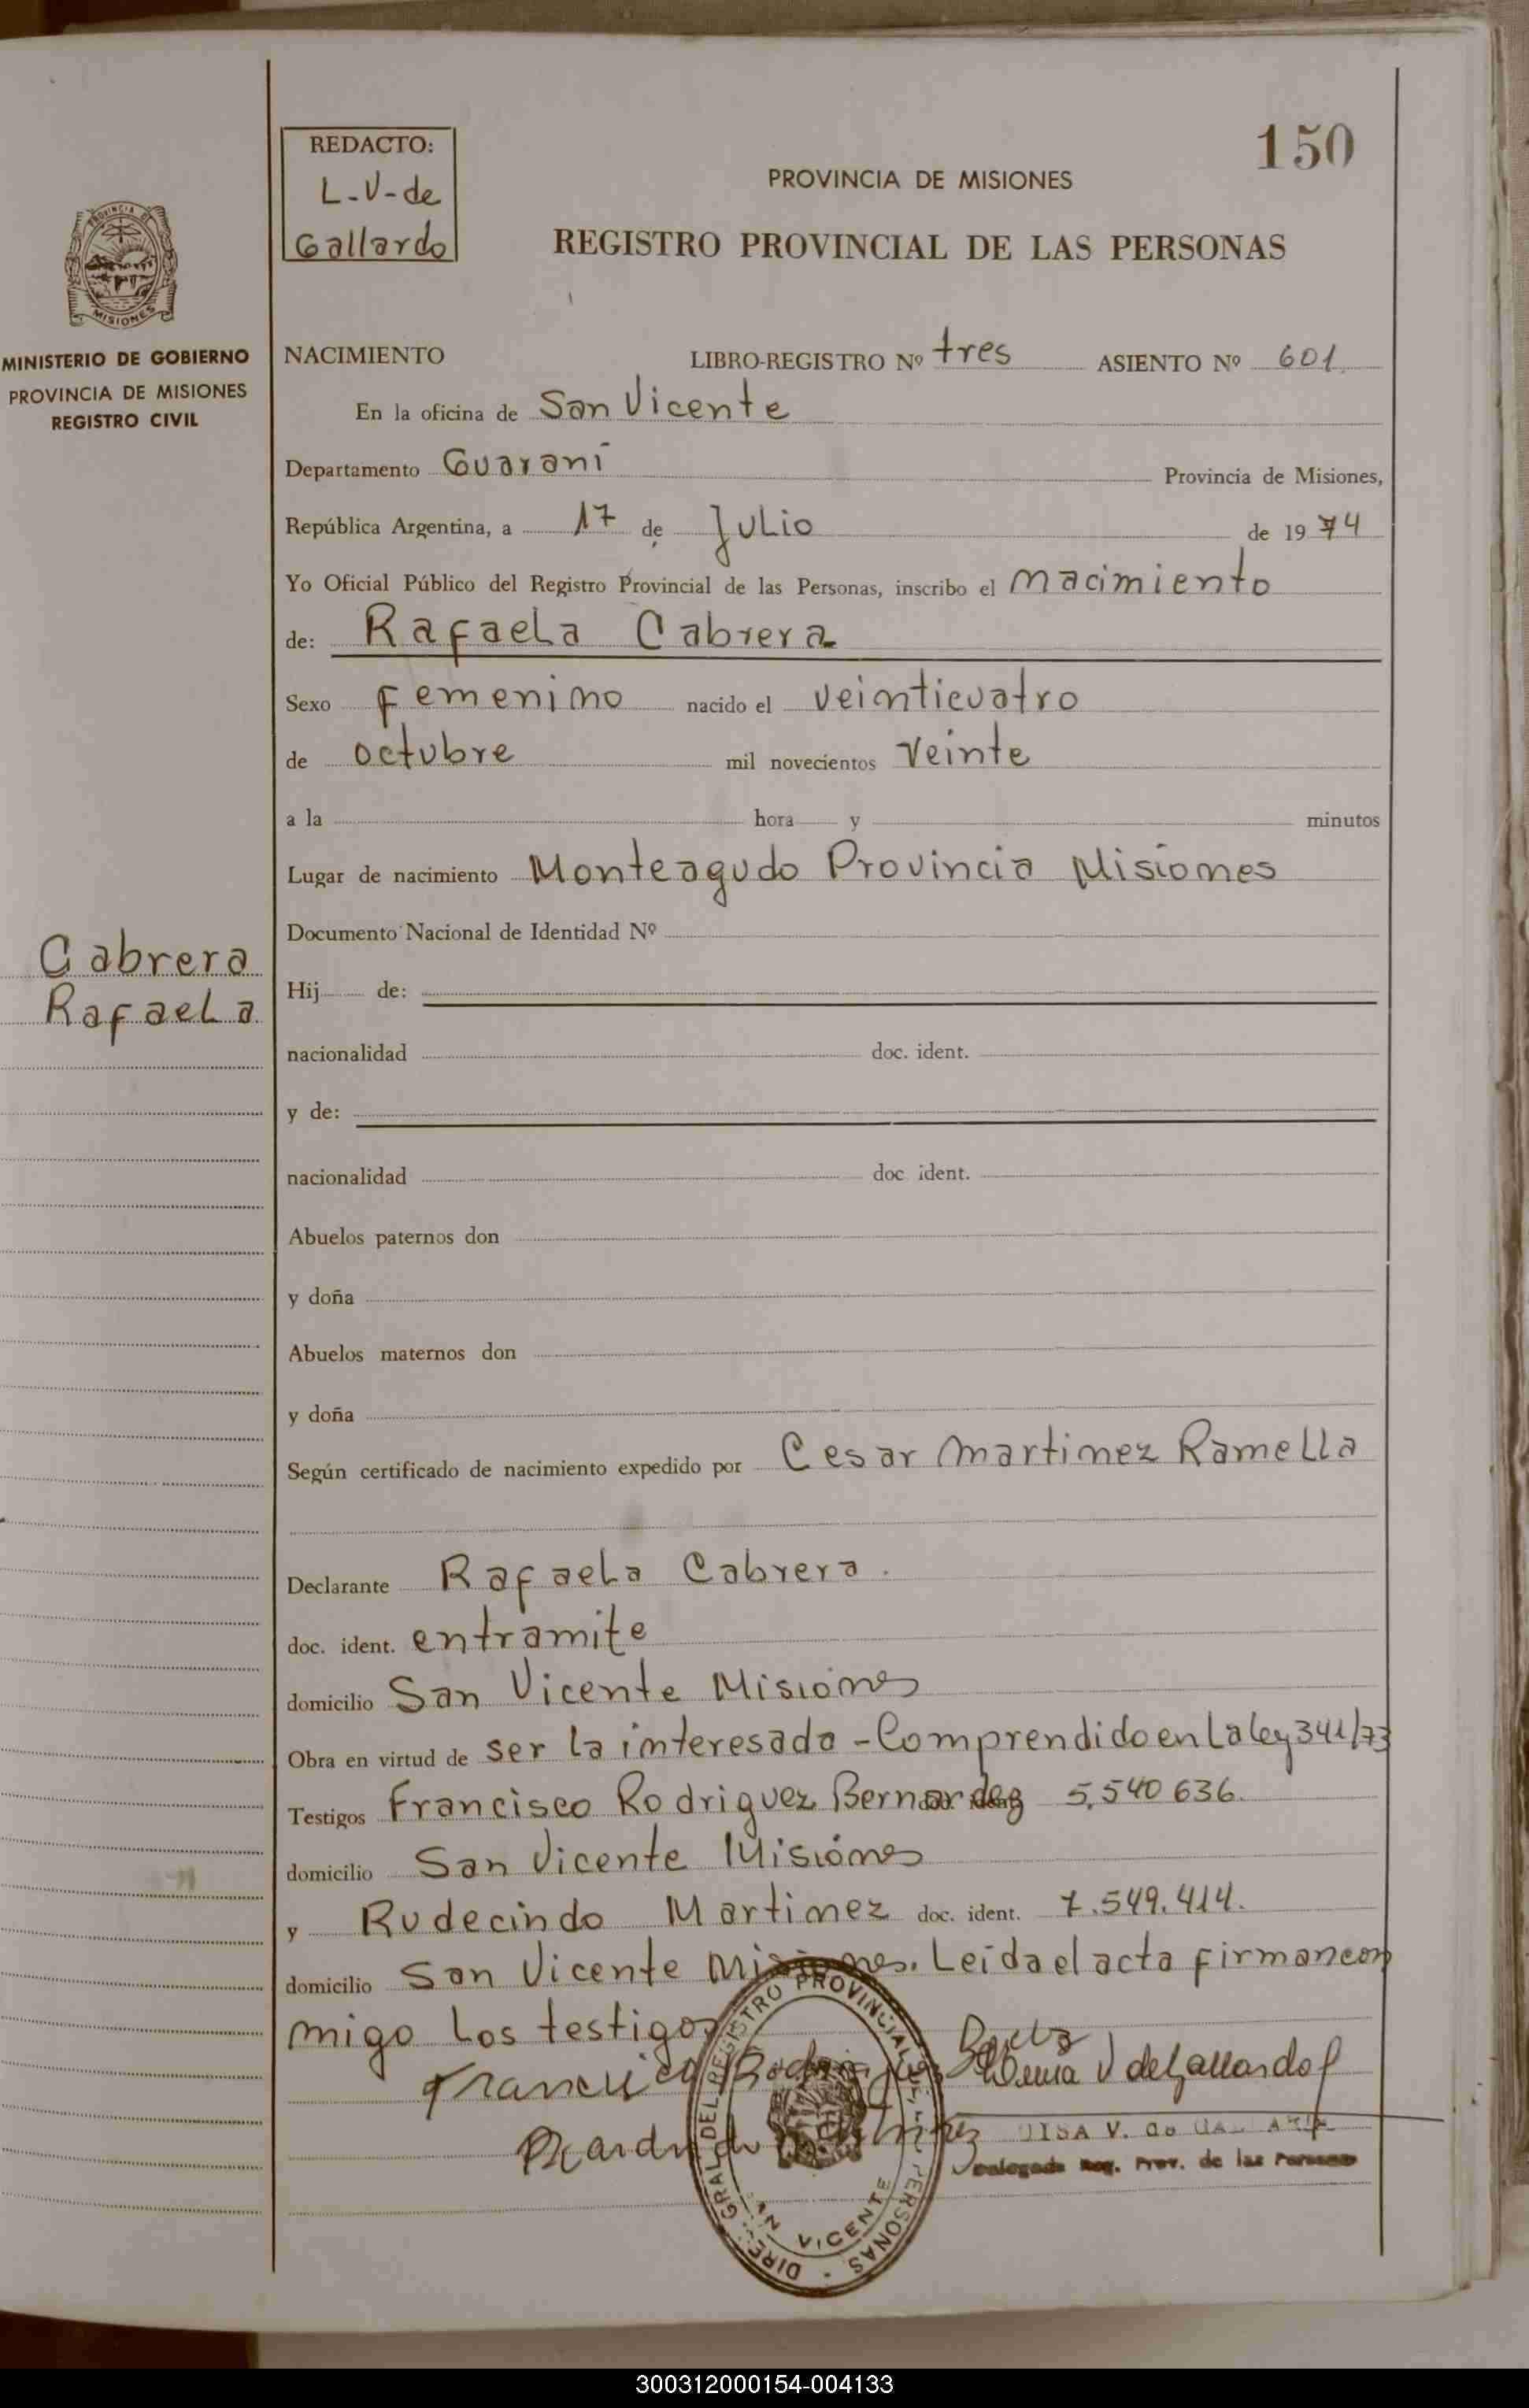 150
REDACTO:
L-V-de
Gallardo
PROVINCIA DE MISIONES
REGISTRO PROVINCIAL DE LAS PERSONAS
PROVINCIA DE
MISIONES
MINISTERIO DE GOBIERNO
PROVINCIA DE MISIONES
REGISTRO CIVIL
NACIMIENTO LIBRO-REGISTRO Nº tres ASIENTO Nº 601
En la oficina de San Vicente
Departamento Guarani Provincia de Misiones,
República Argentina, a 17 de Julio de 1974
Yo Oficial Público del Registro Provincial de las Personas, inscribo el nacimiento
de: Rafaela Cabrera
Sexo femenino nacido el veinticuatro
de octubre mil novecientos veinte
a la hora y minutos
Lugar de nacimiento Monteagudo Provincia Misiones
Documento Nacional de Identidad Nº
Cabrera
Rafaela
Hij de:
nacionalidad doc. ident.
y de:
nacionalidad doc. ident.
Abuelos paternos don
y doña
Abuelos maternos don
y doña
Según certificado de nacimiento expedido por Cesar Martinez Ramella
Declarante Rafaela Cabrera.
doc. ident. entramite
domicilio San Vicente Misiones
Obra en virtud de ser la interesada - Comprendido en La ley 341/73
Testigos Francisco Rodriguez Bernardez 5,540 636.
domicilio San Vicente Misiones
y Rudecindo Martinez doc. ident. 7.549.414.
domicilio San Vicente Misiones. Leida el acta firman con
migo Los testigos
Francisco Rodriguez V de Gallardo
V. de
Delegada Reg. Prov. de las Personas
DIRE. GRAL DEL REGISTRO PROVINCIAL PERSONAS
VICENTE
300312000154-004133